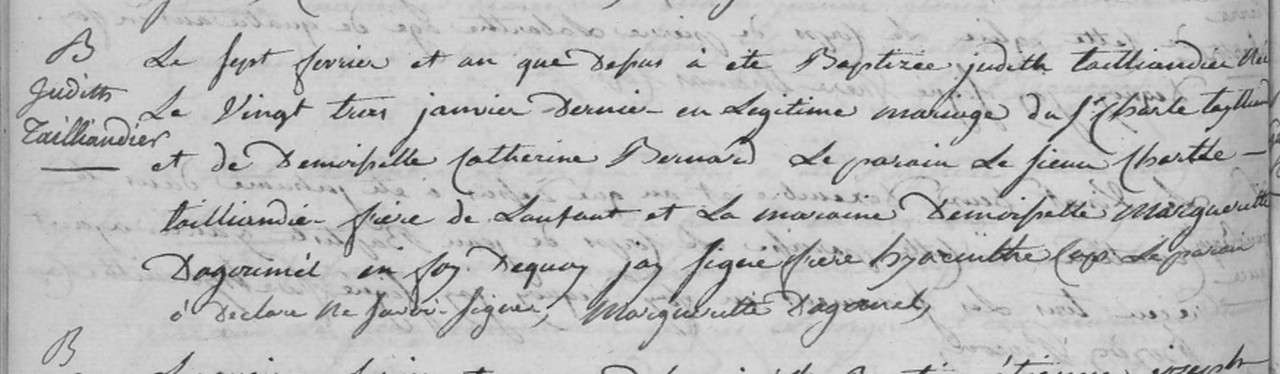 B
Judith
Tailliandier
Le sept fevrier et an que Depus à ete Baptizée judith tailliandier Née
Le Vingt trois janvier Dernier en Legitime mariage du Sr Charle taylliand
et de Demoiselle Catherine Bernard Le parain Le sieur Charle
tailliandié frère de Lenfant et La maraine Demoiselle Margueritte
Dagoumel en foy Dequoy jay signé frere hyacinthe Cap. Le parain
à Declare Ne savoir signer, Marguerite Dagoumel,
B